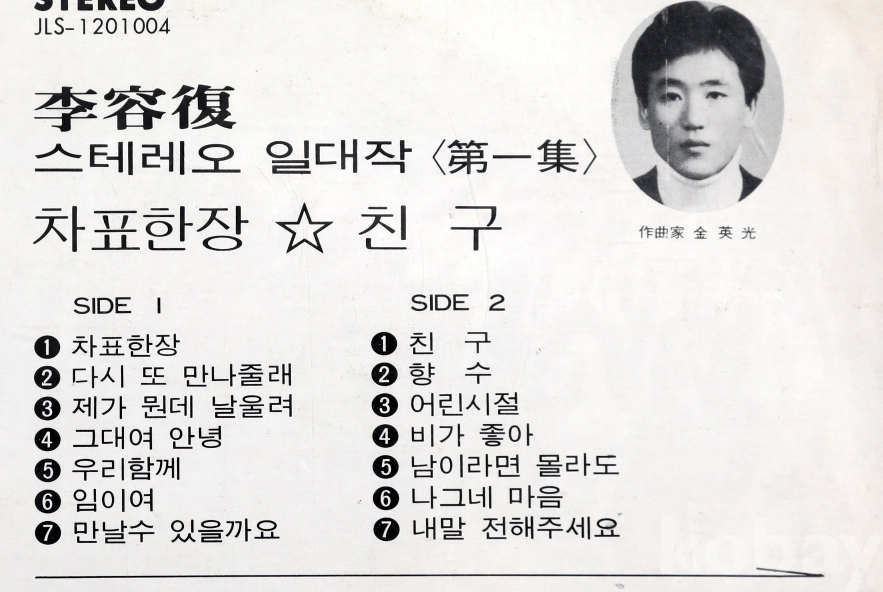 STEREO
JLS-1201004
李容復
스테레오 일대작 〈第一集〉
차표한장 ☆ 친 구
作曲家 金 英 光
SIDE 1
❶ 차표한장
❷ 다시 또 만나줄래
❸ 제가 뭔데 날울려
❹ 그대여 안녕
❺ 우리함께
❻ 임이여
❼ 만날수 있을까요
SIDE 2
❶ 친 구
❷ 향 수
❸ 어린시절
❹ 비가 좋아
❺ 남이라면 몰라도
❻ 나그네 마음
❼ 내말 전해주세요
kobay